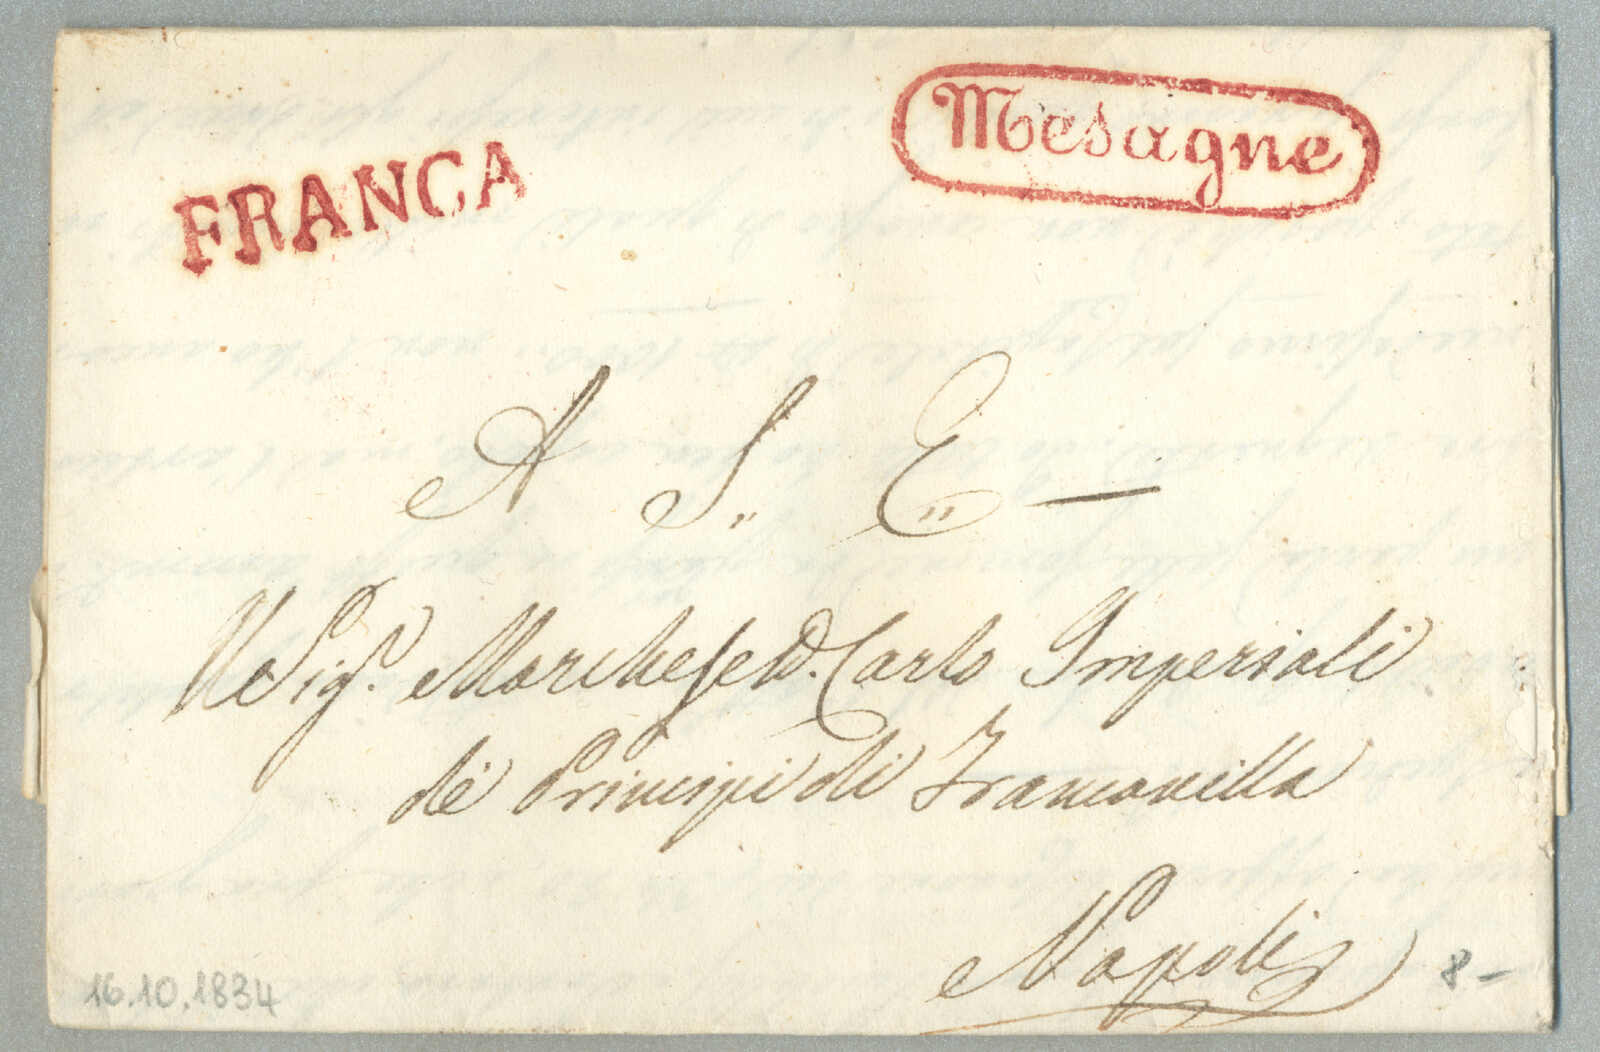 FRANCA
Mesagne
A S,, E,, —
Il Sig.r Marchese D. Carlo Imperiali
de' Principi di Francavilla
Napoli
16.10.1834
8 –